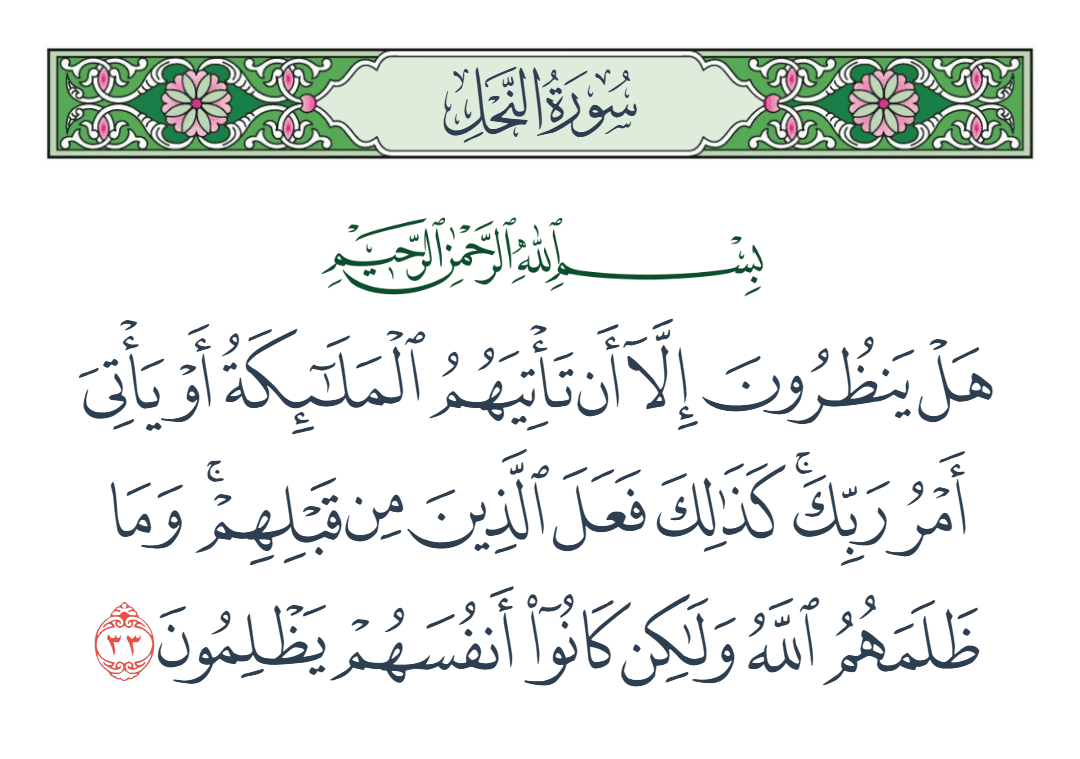 سُورَةُ النَّحْلِ
بِسْمِ ٱللَّهِ ٱلرَّحْمَٰنِ ٱلرَّحِيمِ
هَلْ يَنظُرُونَ إِلَّآ أَن تَأْتِيَهُمُ ٱلْمَلَـٰٓئِكَةُ أَوْ يَأْتِىَ
أَمْرُ رَبِّكَ ۚ كَذَٰلِكَ فَعَلَ ٱلَّذِينَ مِن قَبْلِهِمْ ۚ وَمَا
ظَلَمَهُمُ ٱللَّهُ وَلَـٰكِن كَانُوٓا۟ أَنفُسَهُمْ يَظْلِمُونَ ٣٣